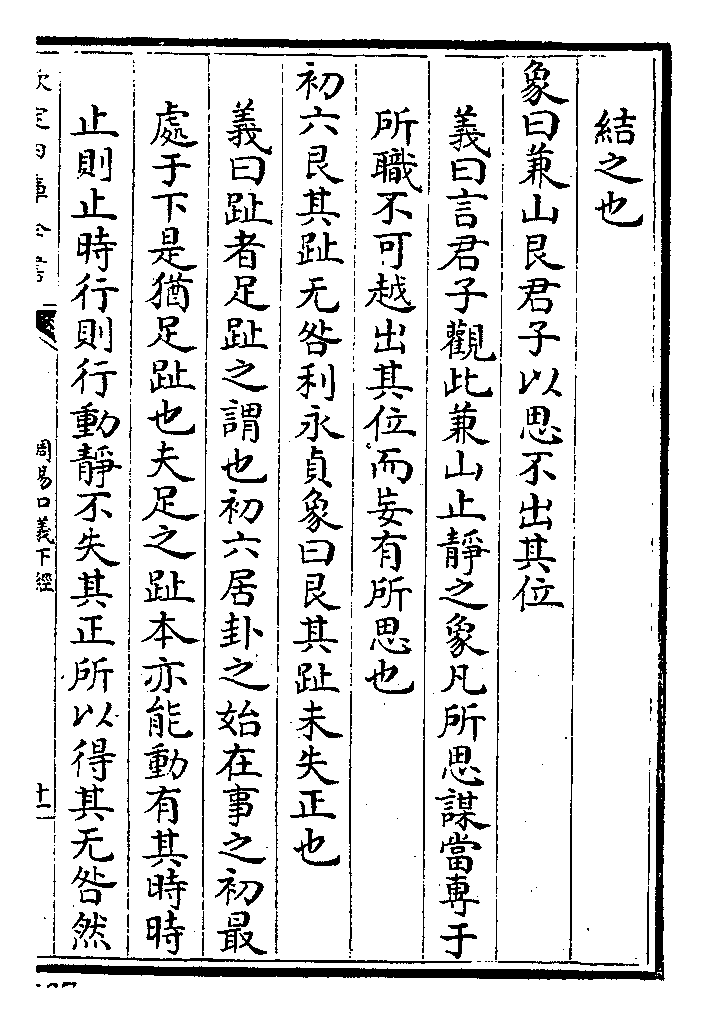 結之也
象曰兼山艮君子以思不出其位
義曰言君子觀此兼山止靜之象凡所思謀當専于
所職不可越出其位而妄有所思也
初六艮其趾无咎利永貞象曰艮其趾未失正也
義曰趾者足趾之謂也初六居卦之始在事之初最
處于下是猶足趾也夫足之趾本亦能動有其時時
止則止時行則行動靜不失其正所以得其无咎然
周易口義下經
十一